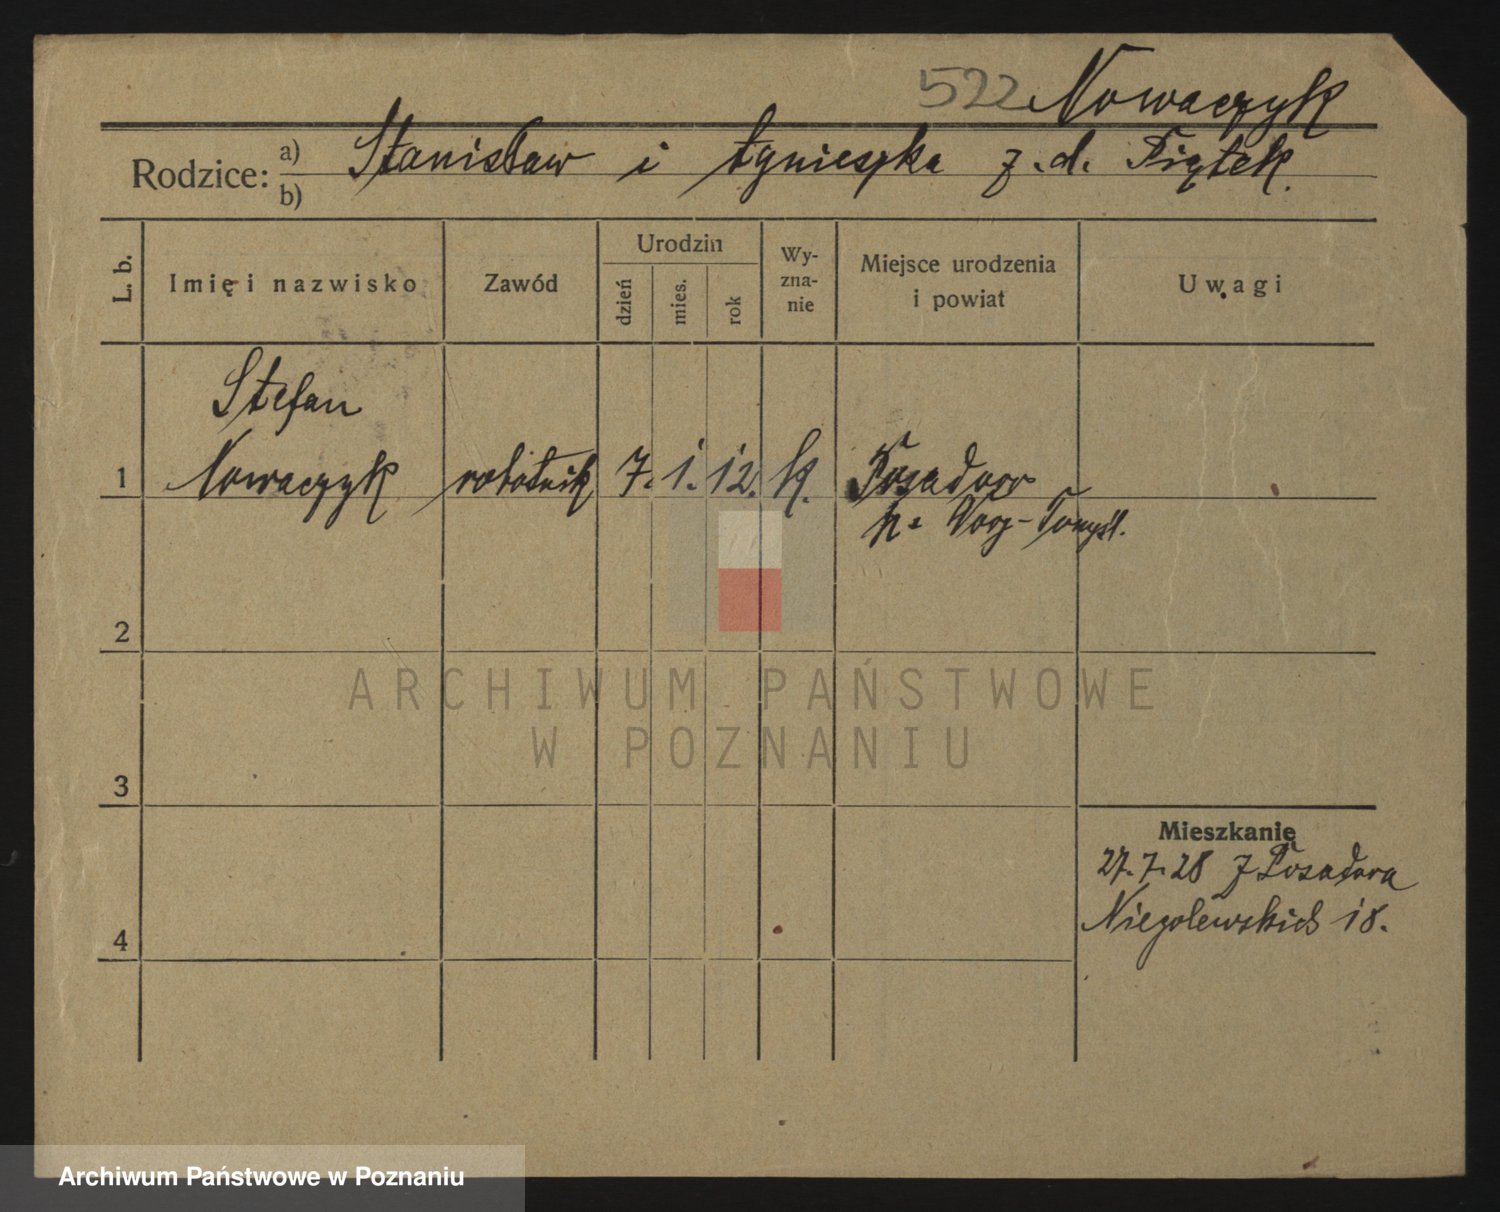 522 Nowaczyk
Rodzice: a) Stanisław i Agnieszka z.d. Piątek.
b)
L. b.
Imię i nazwisko
Zawód
Urodzin
dzień
mies.
rok
Wy-
zna-
nie
Miejsce urodzenia
i powiat
Uwagi
Stefan
1 Nowaczyk robotnik 7. 1. 12. k. Posadowo
Now-Tomyśl.
2
3
4
Mieszkanie
27.7.28 z Posadowa
Niegolewskich 18.
ARCHIWUM PAŃSTWOWE
W POZNANIU
Archiwum Państwowe w Poznaniu